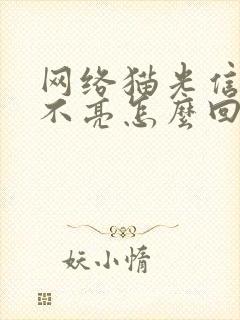 网络猫光信
不亮怎麼回
妖小情